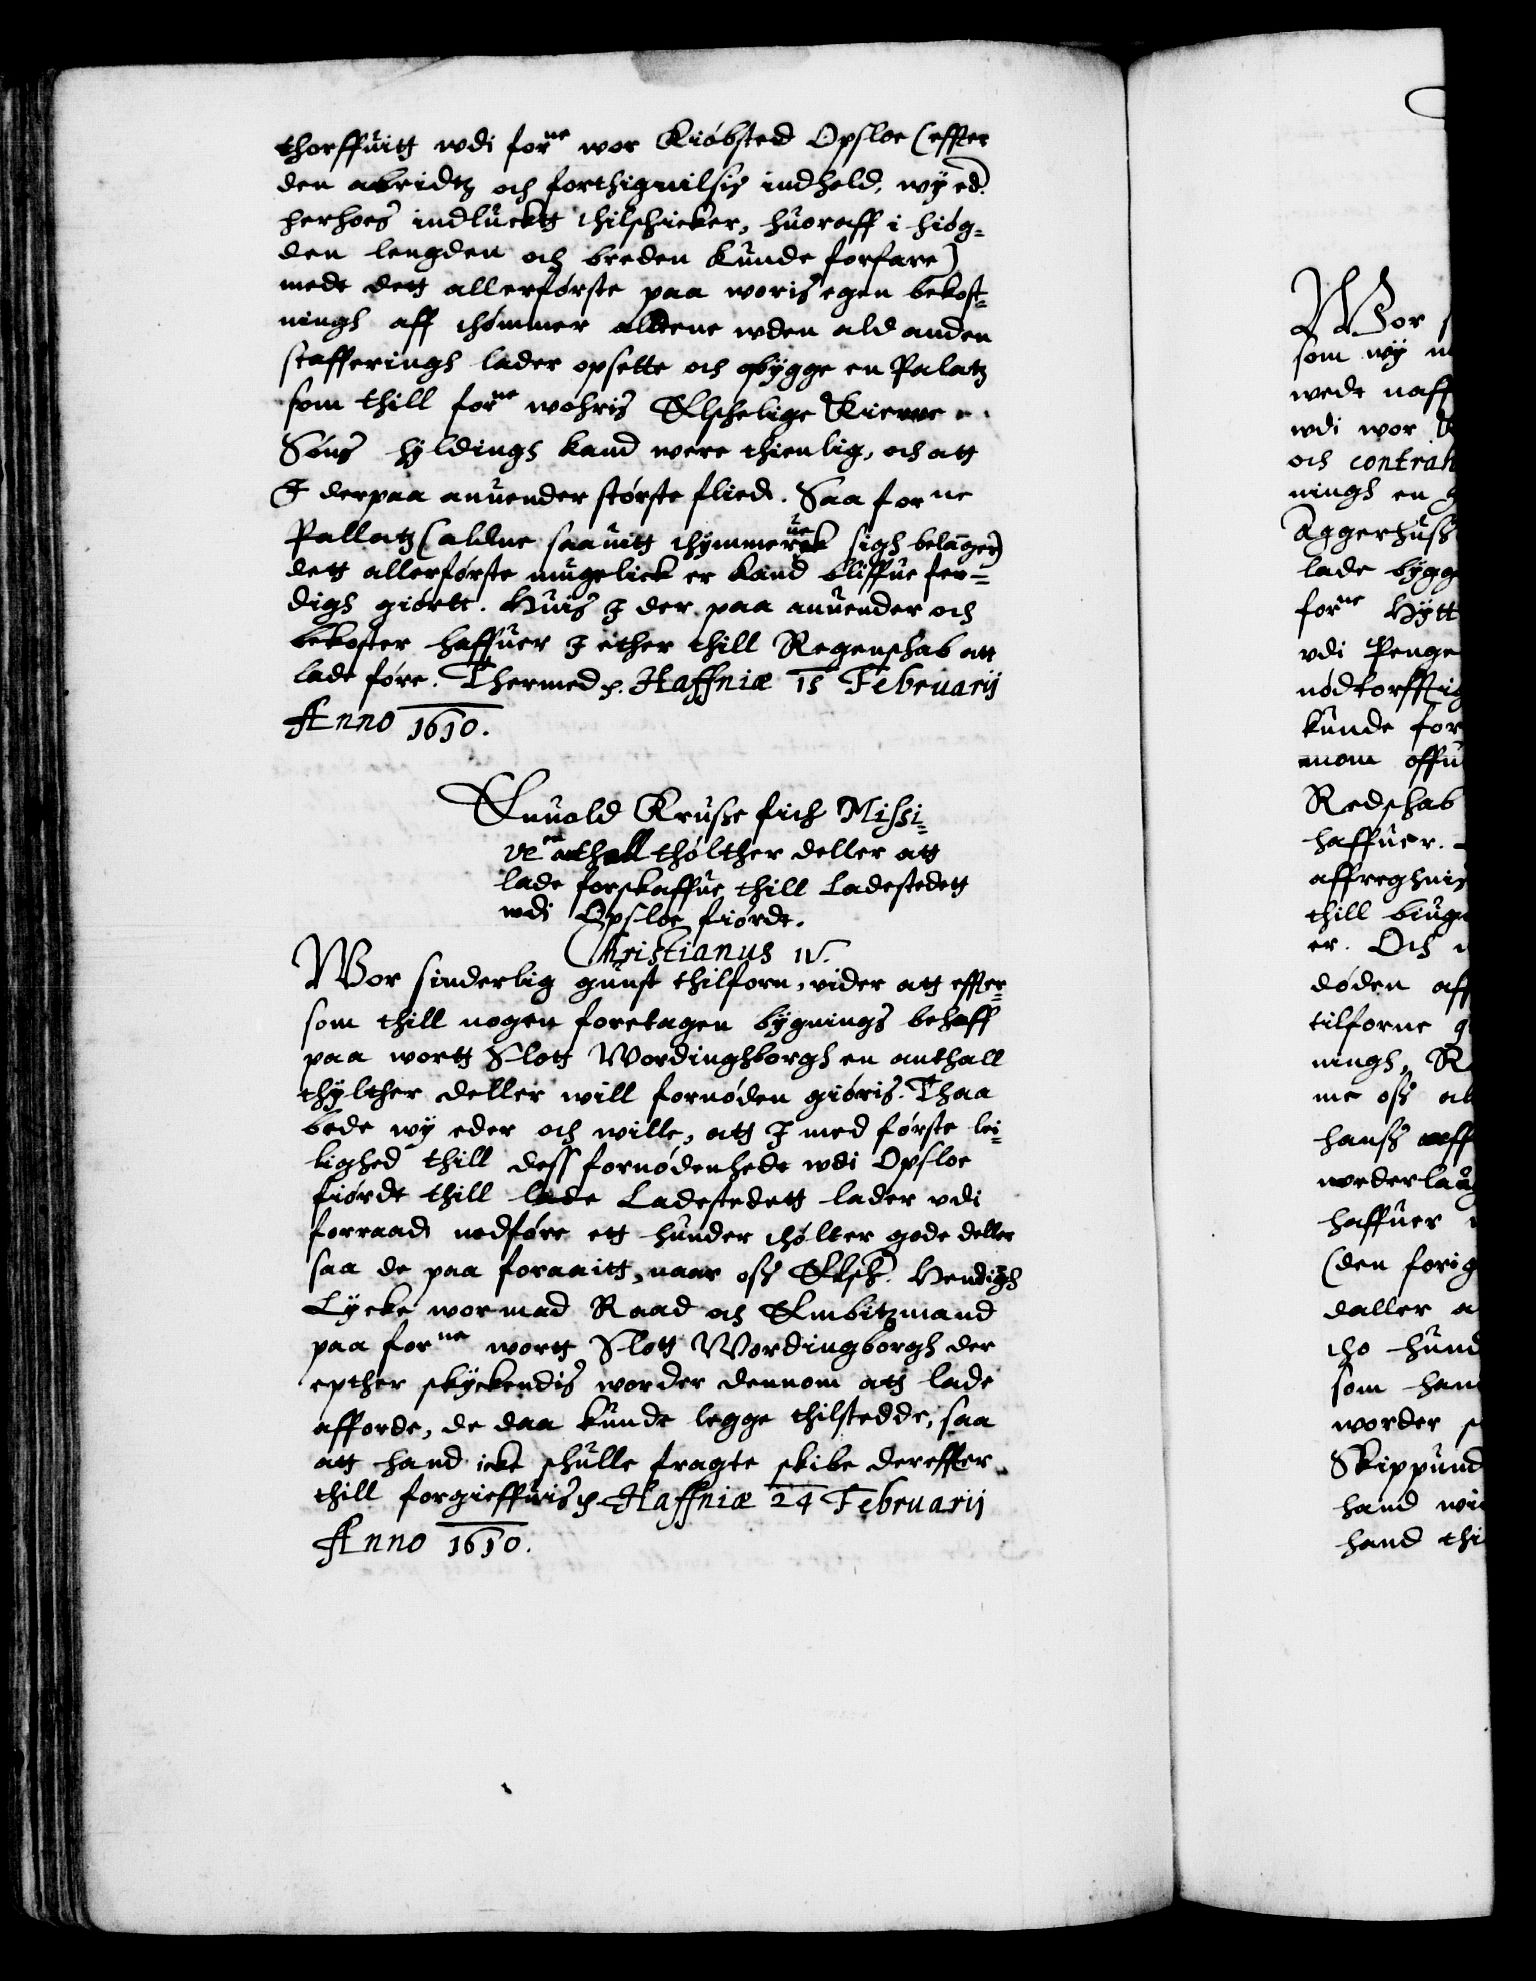 thorffuitg wdi forne wor Kiøbsted Opsloe (effter
den abridtz och forthignilsis indhold, wy ed.
herhoes indlucktt thilschicker, huoraff i hiøg-
den lengden och breden kunde forfare)
medt dett allerførste paa woris egen bekost-
ningh aff thømmer alldene wden ald anden
stafferingh lader opsette och bygge en Palatz
som thill forne wohris Elschelige Kierre
Søns hyldingh kand were thienlig, och att
I derpaa anuender største fliedt. Saa forne
Pallatz (aldne saauitt thymmer sigh belanger)
dett allerførste mugelick er kand bliffue fer-
digh giørtt. Huis I der paa anuender och
bekoster haffuer I ether thill Regenschab att
lade føre. Thermed p. Haffniæ 15 Februarij
Anno 1610.
Enuold Krusse fich Missi-
ve en anthall thølther deller att
lade forskaffue thill Ladestedett
wdi Opsloe fiordt.
Christianus IV.
Wor sinderlig gunst thilforn, vider att effter-
som thill nogen foretagen bygnings behoff
paa wortt Slott Wordinghborgh en anthall
thylther deller will fornøden giøris. Thaa
bede wy eder och wille, att I med første lei-
lighed thill dess fornødenhedt wdi Opsloe
fiordt thill lade Ladestedett lader vdi
forraadt nedføre ett hunder thølter gode deller
saa de paa foraaitt, naar oss Elsch. Hendrigh
Lycke wor mand Raad och Embitzmand
paa forne wortt Slott Wordingborgh der
epther skyckendis worder dennom att lade
afforde, de daa kunde legge thilstedde, saa
att hand icke schulle fragte skibe dereffter
thill forgieffuis p. Haffniæ 24 Februarij
Anno 1610.
Wor
som wy
wedt
wdi wor
och contrah
ningh en
Aggerhuss
lade bygge
forne Hytt
vdi Penge
nødtorfftig
kunde for
mom offu
Redschab
haffuer.
affregnis
thill
er. Och
døden aff
tilforne
ningh, R
me oss
hanss
worderlaug
haffuer
(den forig
daller
tho hund
som hand
worder
Skippund
hand wi
hand thi